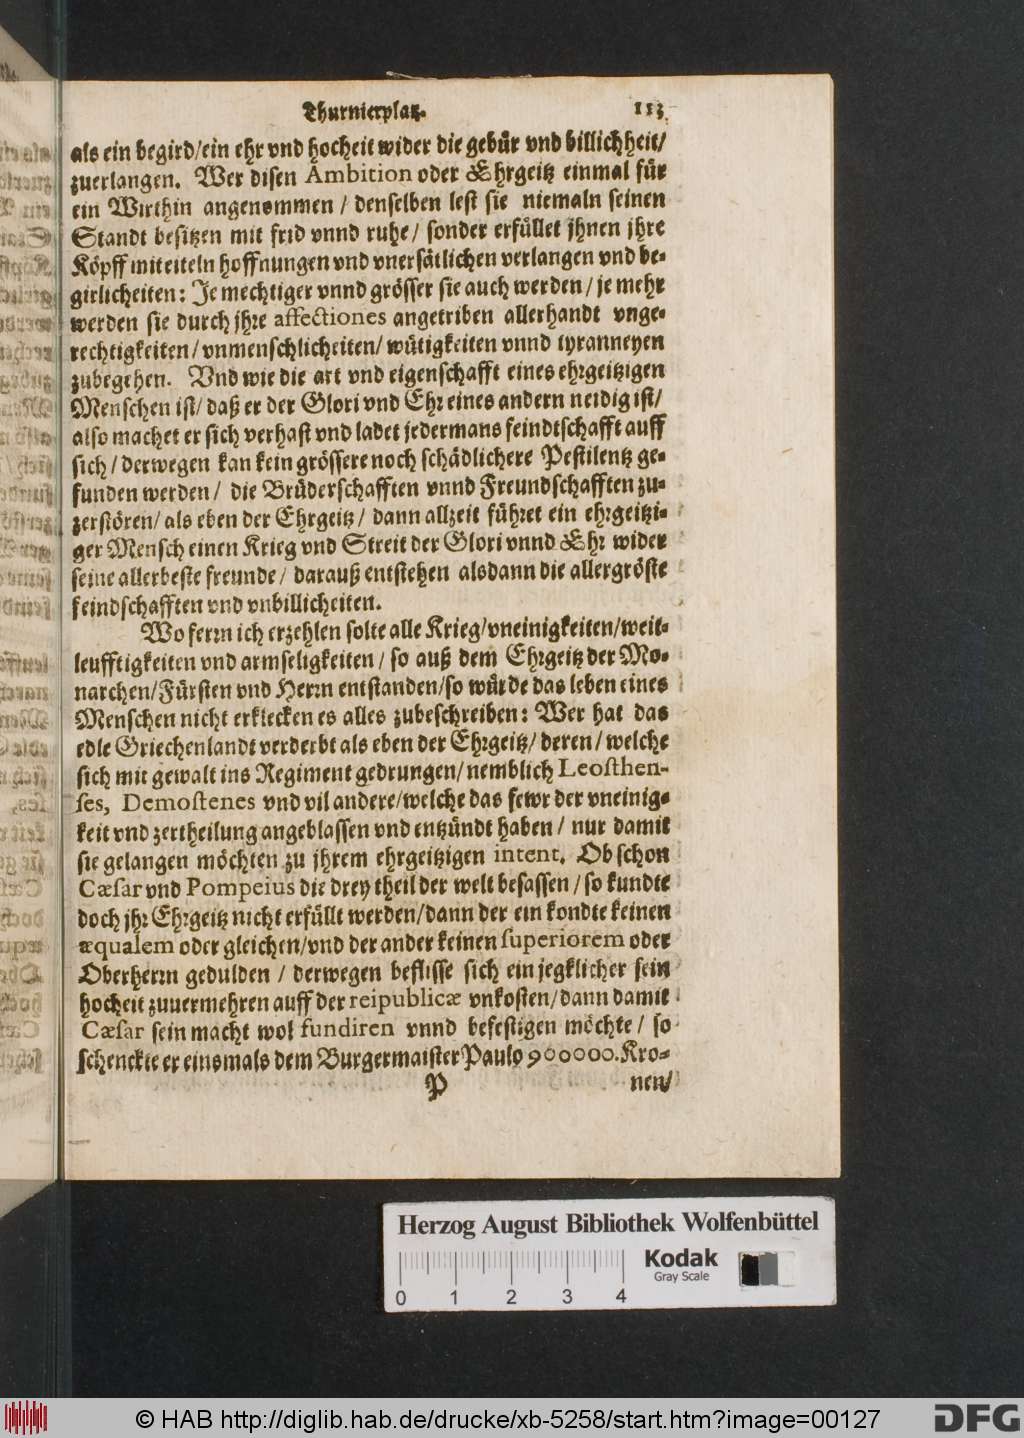 Thurnierplatz. 113
als ein begird/ein ehr vnd hocheit wider die gebür vnd billichheit/
zuerlangen. Wer disen Ambition oder Ehrgeitz einmal für
ein Wirthin angenommen / denselben lest sie niemaln seinen
Standt besitzen mit frid vnnd ruhe/ sonder erfüllet jhnen jhre
Köpff mit eiteln hoffnungen vnd vnersätlichen verlangen vnd be-
girlicheiten: Je mechtiger vnnd grösser sie auch werden/ je mehr
werden sie durch jhre affectiones angetriben allerhandt vnge-
rechtigkeiten/ vnmenschlicheiten/ wütigkeiten vnnd tyranneyen
zubegehen. Vnd wie die art vnd eigenschafft eines ehrgeitzigen
Menschen ist/ daß er der Glori vnd Ehr eines andern neidig ist/
also machet er sich verhast vnd ladet jedermans feindtschafft auff
sich / derwegen kan kein grössere noch schädlichere Pestilentz ge-
funden werden / die Brüderschafften vnnd Freundschafften zu-
zerstören/ als eben der Ehrgeitz / dann allzeit führet ein ehrgeitzi-
ger Mensch einen Krieg vnd Streit der Glori vnnd Ehr wider
seine allerbeste freunde / darauß entstehen alsdann die allergröste
feindschafften vnd vnbillicheiten.
Wo ferrn ich erzehlen solte alle Krieg/vneinigkeiten/weit-
leufftigkeiten vnd armseligkeiten / so auß dem Ehrgeitz der Mo-
narchen/Fürsten vnd Herrn entstanden/so würde das leben eines
Menschen nicht erklecken es alles zubeschreiben: Wer hat das
edle Griechenlandt verderbt als eben der Ehrgeitz/ deren/ welche
sich mit gewalt ins Regiment gedrungen/ nemblich Leosthen-
ses, Demostenes vnd vil andere/welche das fewr der vneinig-
keit vnd zertheilung angeblassen vnd entzündt haben / nur damit
sie gelangen möchten zu jhrem ehrgeitzigen intent. Ob schon
Cæsar vnd Pompeius die drey theil der welt besassen / so kundte
doch jhr Ehrgeitz nicht erfüllt werden/dann der ein kondte keinen
æqualem oder gleichen/vnd der ander keinen superiorem oder
Oberherrn gedulden / derwegen beflisse sich ein jegklicher sein
hocheit zuuermehren auff der reipublicæ vnkosten/dann damit
Cæsar sein macht wol fundiren vnnd befestigen möchte / so
schenckte er einsmals dem Burgermaister Paulo 900000. Kro-
P nen/
Herzog August Bibliothek Wolfenbüttel
Kodak
Gray Scale
0 1 2 3 4
© HAB http://diglib.hab.de/drucke/xb-5258/start.htm?image=00127
DFG